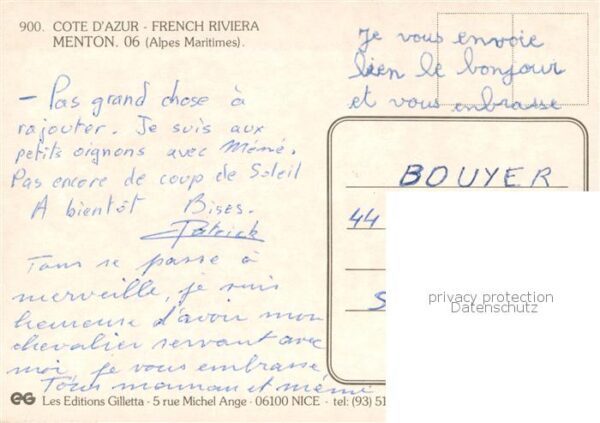 900. COTE D'AZUR - FRENCH RIVIERA
MENTON. 06 (Alpes Maritimes).
Je vous envoie
bien le bonjour
et vous embrasse
- Pas grand chose à
rajouter. Je suis aux
petits oignons avec Mémé.
Pas encore de coup de Soleil
A bientôt Bises.
Patrick
Tous se passe à
merveille, je suis
heureuse d'avoir mon
chevalier servant avec
moi, je vous embrasse
Tous maman et mémé
BOUYER
44
S
privacy protection
Datenschutz
EG Les Editions Gilletta - 5 rue Michel Ange - 06100 NICE - tel: (93) 51